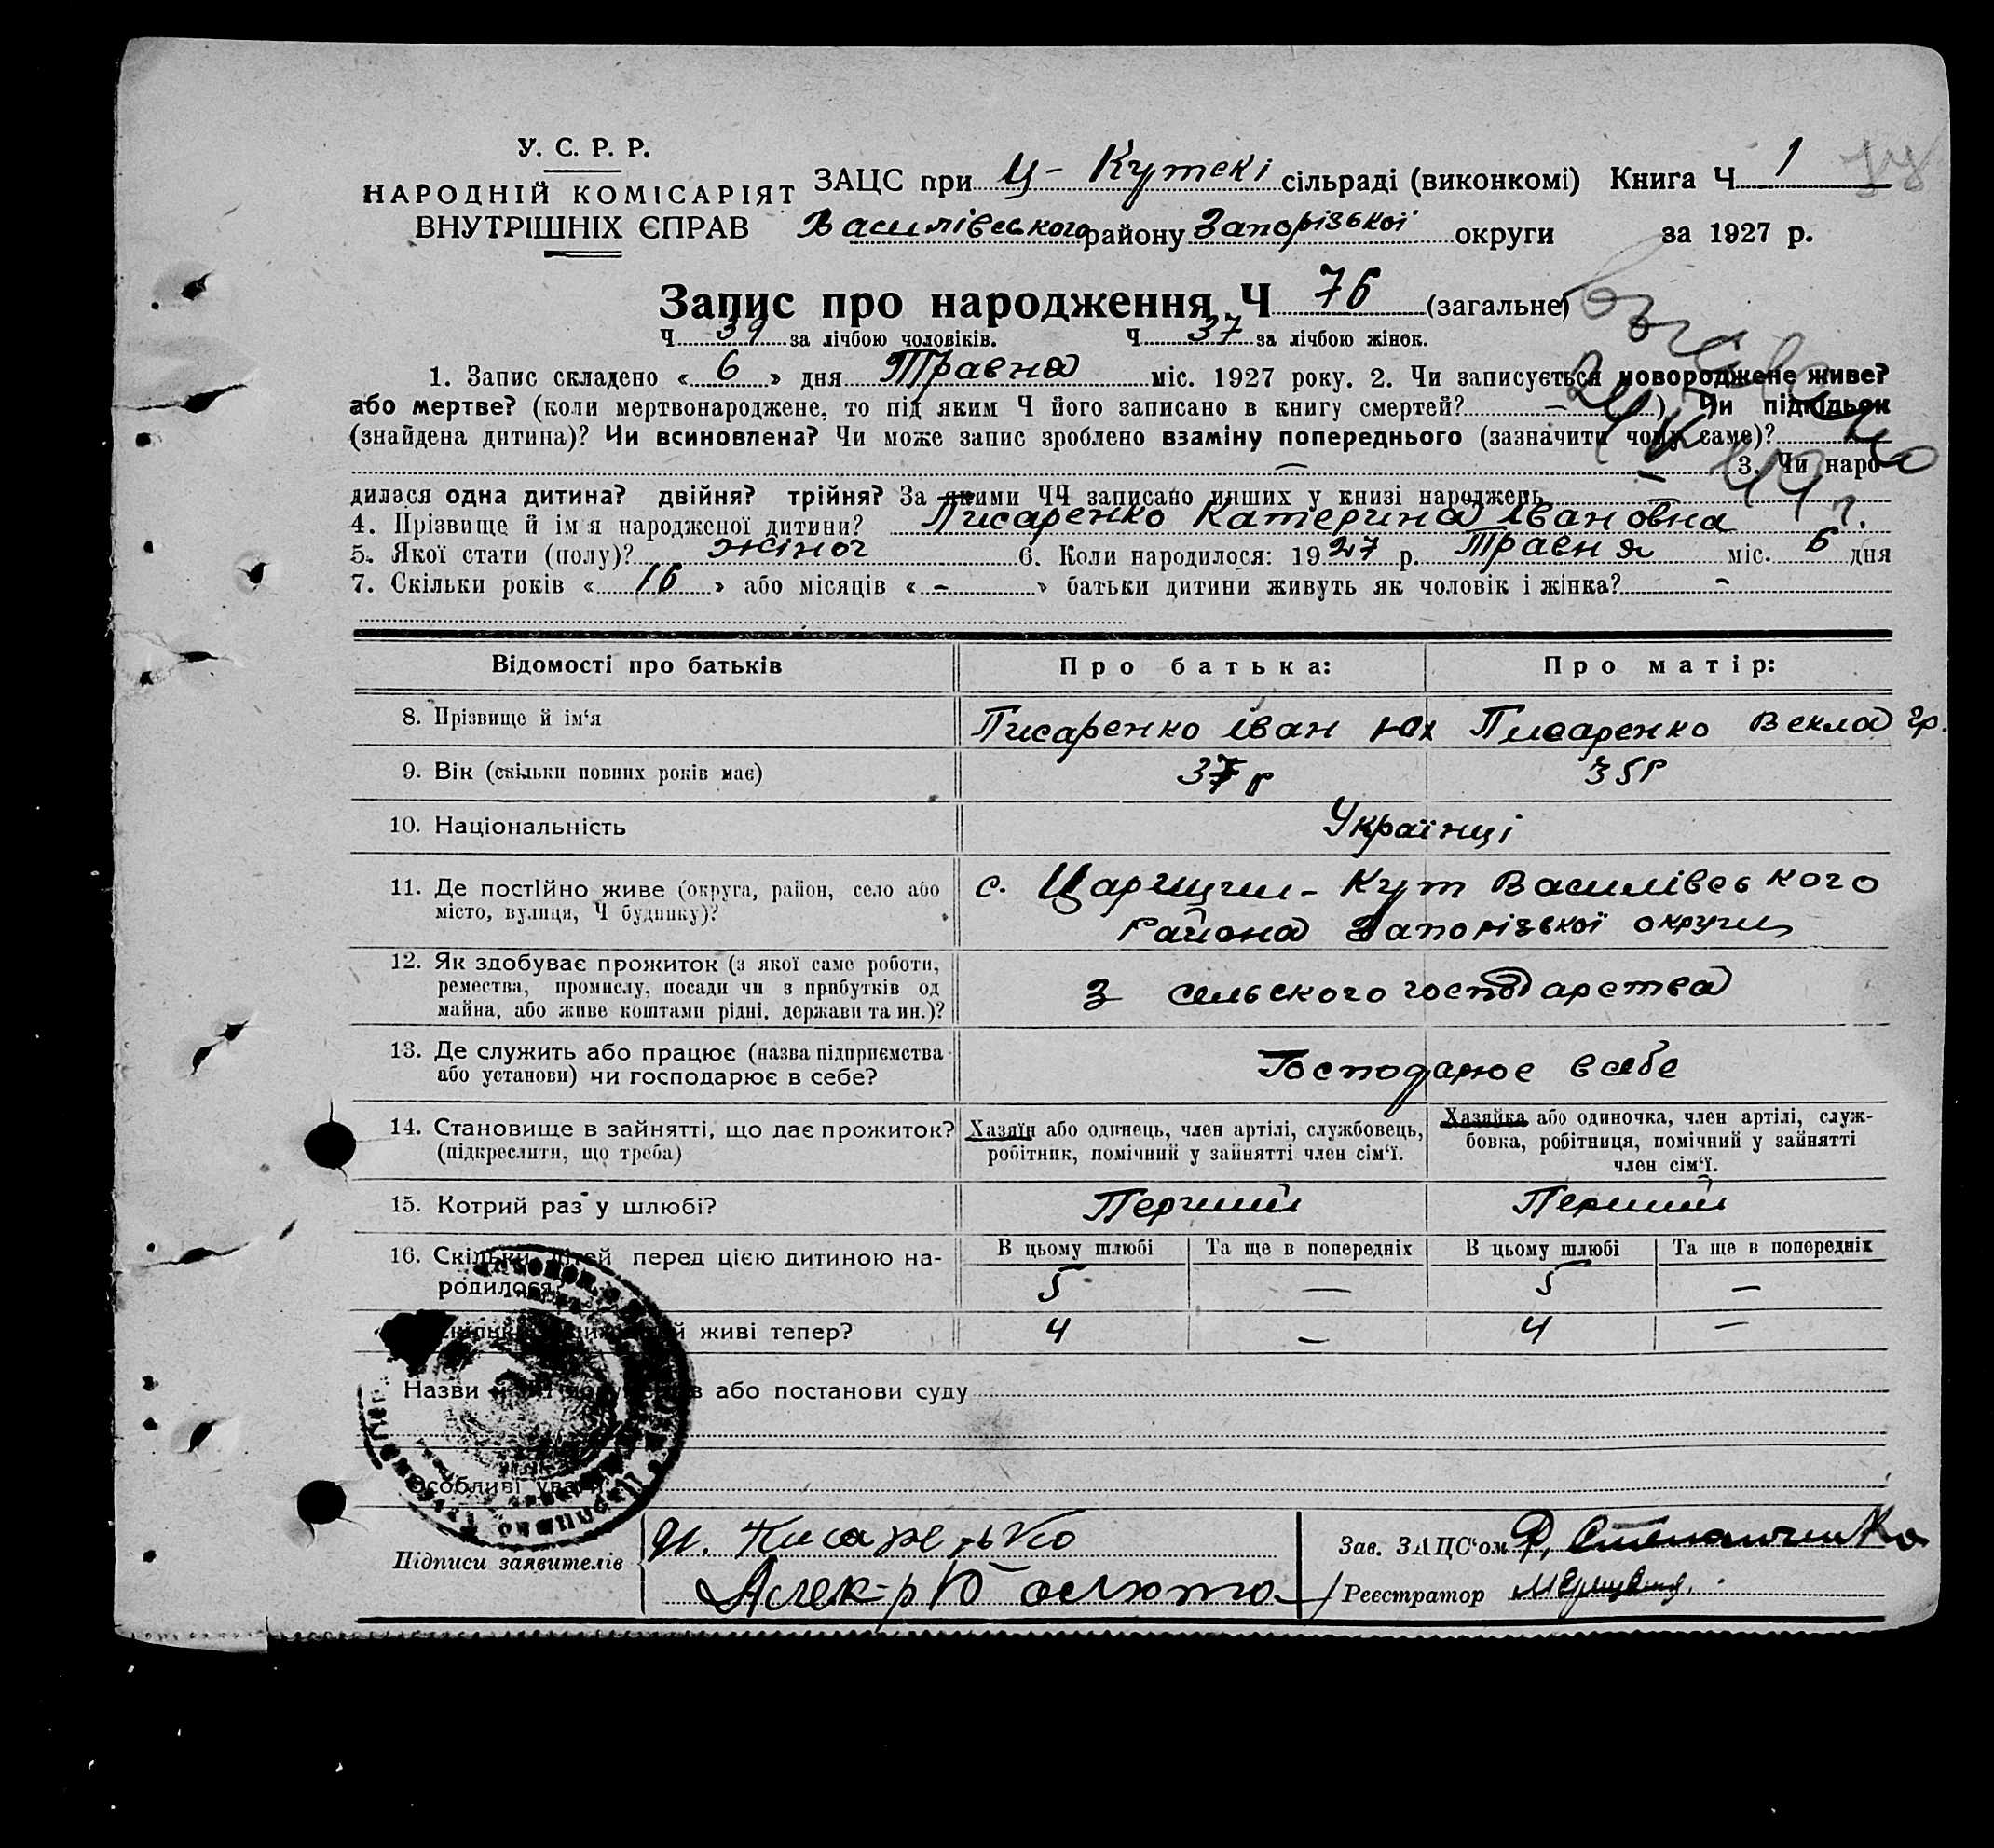 У. С. Р. Р.
НАРОДНІЙ КОМІСАРІЯТ
ВНУТРІШНІХ ЄПРАВ
ЗАЦС при Ц- Кутскі сільраді (виконкомі) Книга Ч 1
Василівського району Запорізької округи за 1927 р.
Запис про народження Ч 76 (загальне)
Ч 39 за лічбою чоловіків. Ч 37 за лічбою жінок.
1. Запис складено « 6 » дня Травня міс. 1927 року. 2. Чи записується новороджене живе?
або мертве? (коли мертвонароджене, то під яким Ч його записано в книгу смертей? – ) Чи підкідьок
(знайдена дитина)? Чи всиновлена? Чи може запис зроблено взаміну попереднього (зазначити чому саме)?
– 3. Чи наро-
дилася одна дитина? двійня? трійня? За якими ЧЧ записано инших у книзі народжень –
4. Прізвище й ім'я народженої дитини? Писаренко Катерина Івановна
5. Якої стати (полу)? жіноч 6. Коли народилося: 1927 р. Травня міс. 6 дня
7. Скільки років « 16 » або місяців « – » батьки дитини живуть як чоловік і жінка? –
Відомості про батьків Про батька: Про матір:
8. Прізвище й ім'я Писаренко Іван Юх Писаренко Векла Гр.
9. Вік (скільки повних років має) 37 р 35 р
10. Національність Українці
11. Де постійно живе (округа, район, село або
місто, вулиця, Ч будинку)?
с. Царицин-Кут Василівського
Района Запорізької округи
12. Як здобуває прожиток (з якої саме роботи,
ремества, промислу, посади чи з прибутків од
майна, або живе коштами рідні, держави та ин.)?
З сельського господарства
13. Де служить або працює (назва підприємства
або установи) чи господарює в себе?
Господарює в себе
14. Становище в зайнятті, що дає прожиток?
(підкреслити, що треба)
Хазяїн або одинець, член артілі, службовець,
робітник, помічний у зайнятті член сім'ї.
Хазяйка або одиночка, член артілі, служ-
бовка, робітниця, помічний у зайнятті
член сім'ї.
15. Котрий раз у шлюбі? Перший Перший
16. Скільки дітей перед цією дитиною на-
родилося?
В цьому шлюбі Та ще в попередніх В цьому шлюбі Та ще в попередніх
5 — 5 —
живі тепер? 4 – 4 –
Назви або постанови суду
Особливі уваги
Підписи заявителів
И. Писаренько
Алек-р
Зав. ЗАЦС'ом Степанченко
Реєстратор